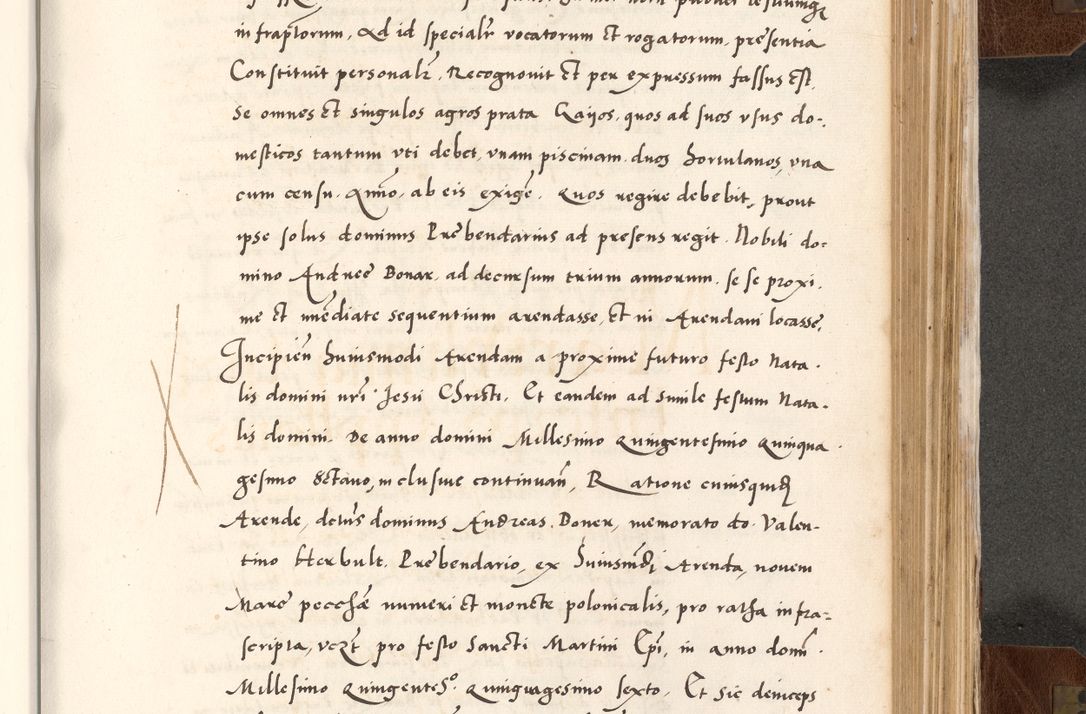 infraptorum, Ad id specialr vocatorum et rogatorum, presentia
Constituit personalr, Recognovit et per expressum fassus est,
Se omnes et singulos agros prata Gaijos, quos ad suos vsus do-
mesticos tantum vti debet, vnam piscinam, duos hortulanos, vna
cum censu, Anno, ab eis exige. Quos regire debebit, prout
ipse solus dominus Prebendarius ad presens regit. Nobili do-
mino Andree Bonar, ad decursum trium annorum, se se proxi.
me et mediate sequentium arendasse, et in Arendam locasse,
Incipien huiusmodi Arendam a proxime futuro festo Nata.
lis domini nri Jesu Christi, Et eandem ad simile festum Nata.
lis domini. De anno domini Millesimo quingentesimo quinqua.
gesimo octavo, inclusive continuan, Ratione cuiusquid
Arende, dctus dominus Andreas Boner, memorato do. Valen-
tino Herbult, Prebendario, ex huiusmdi Arenda, novem
Marc pecche numeri et monete polonicalis, pro ratha infra-
scripta, vczt pro festo Sancti Martini Epi, in anno domi.
Millesimo quingentes.o quinquagesimo sexto, Et sic deinceps